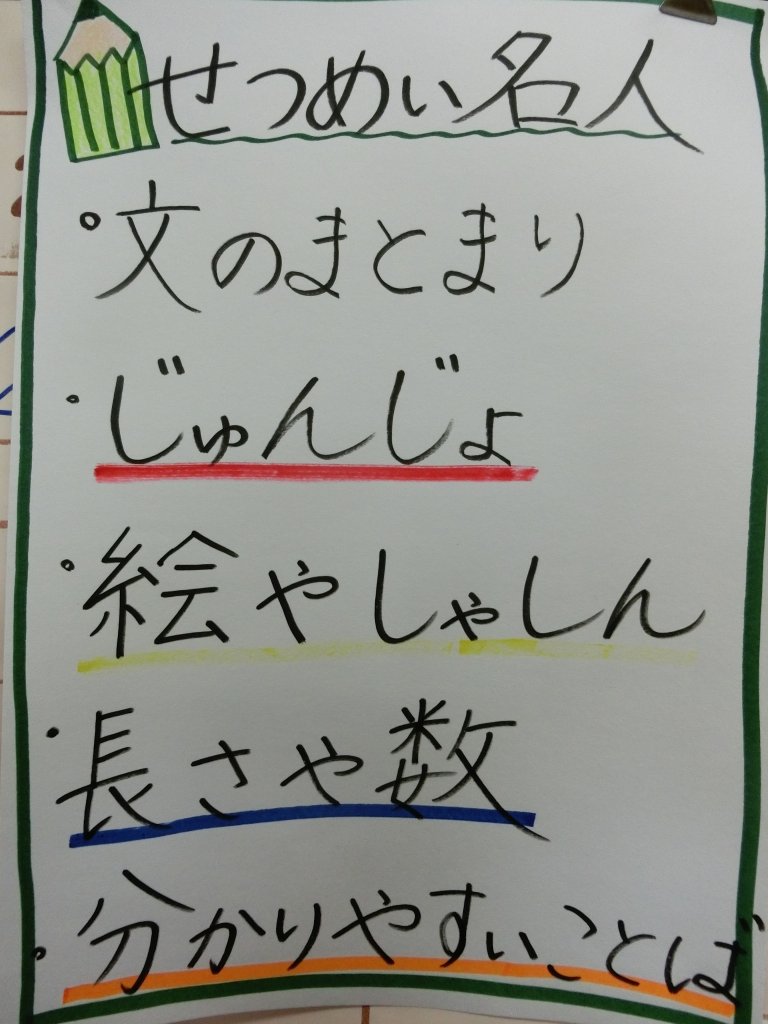 せつめい名人
。文のまとまり
。じゅんじょ
。絵やしゃしん
。長さや数
。分かりやすいことば